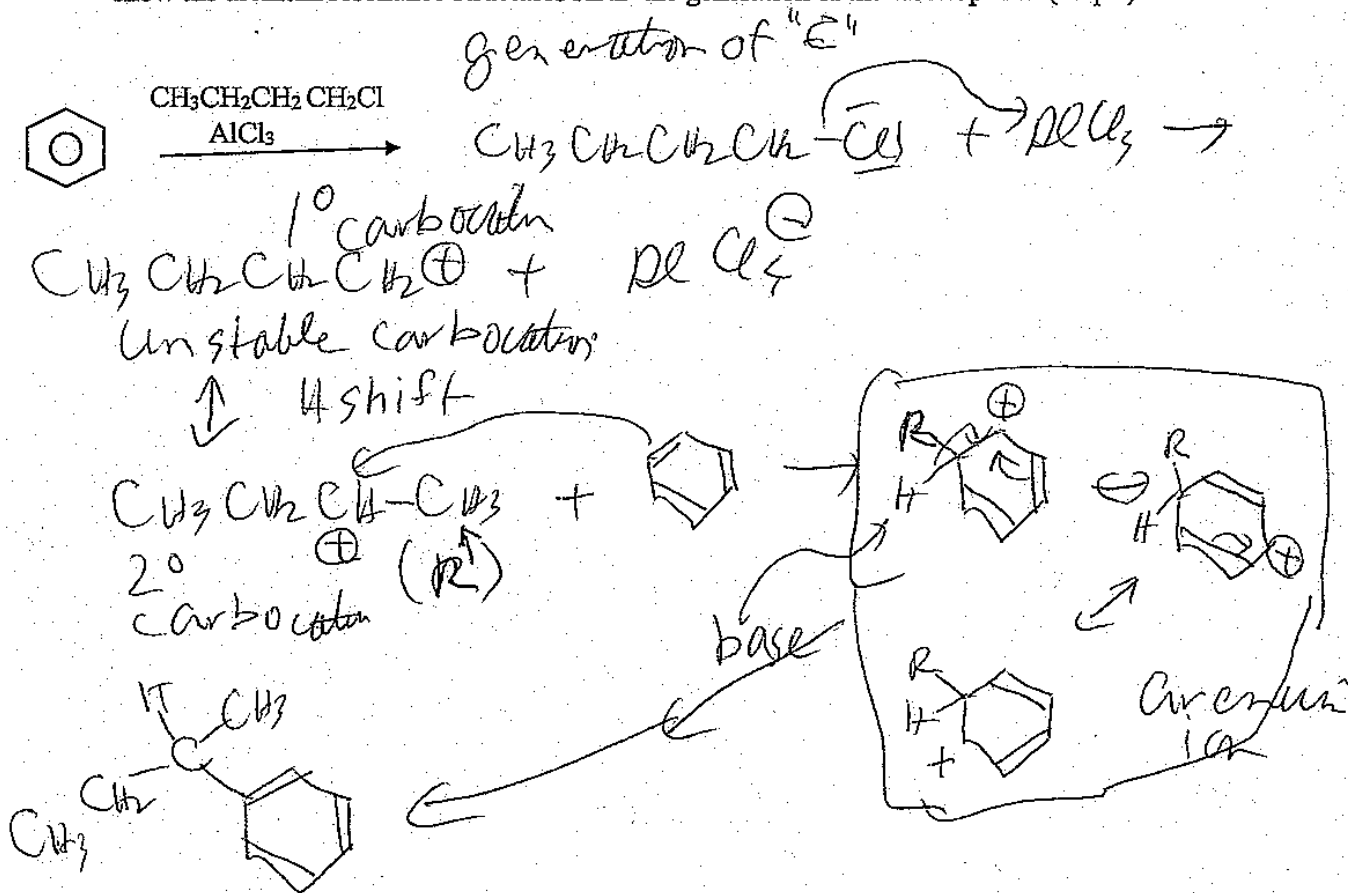 generation of "E"
CH3CH2CH2 CH2Cl
AlCl3
CH3 CH2 CH2 CH2-Cl + AlCl3 →
1° carbocatn
CH3 CH2 CH2 CH2 ⊕ + AlCl4 ⊖
Unstable carbocation
H shift
CH3 CH2 CH-CH3 +
⊕
2° (R)
carbocation
base
R ⊕
H
R
H ⊕
R
H
+
arenium
ion
H CH3
C
CH2
CH3